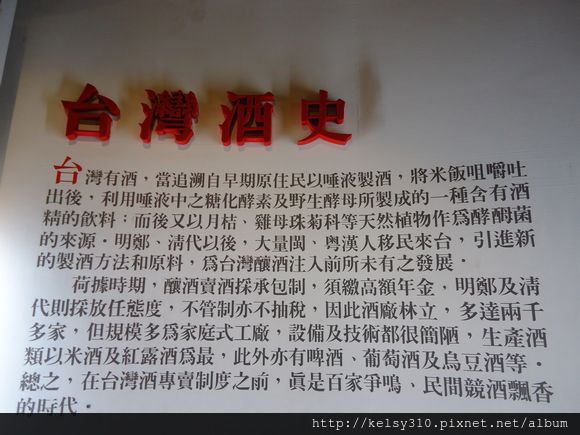 台灣酒史
台灣有酒，當追溯自早期原住民以唾液製酒，將米飯咀嚼吐
出後，利用唾液中之糖化酵素及野生酵母所製成的一種含有酒
精的飲料；而後又以月桔、雞母珠菊科等天然植物作為酵酶菌
的來源。明鄭、清代以後，大量閩、粵漢人移民來台，引進新
的製酒方法和原料，為台灣釀酒注入前所未有之發展。
荷據時期，釀酒賣酒採承包制，須繳高額年金，明鄭及清
代則採放任態度，不管制亦不抽稅，因此酒廠林立，多達兩千
多家，但規模多為家庭式工廠，設備及技術都很簡陋，生產酒
類以米酒及紅露酒為最，此外亦有啤酒、葡萄酒及烏豆酒等。
總之，在台灣酒專賣制度之前，眞是百家爭鳴、民間競酒飄香
的時代。
http://kelsy310.pixnet.net/album